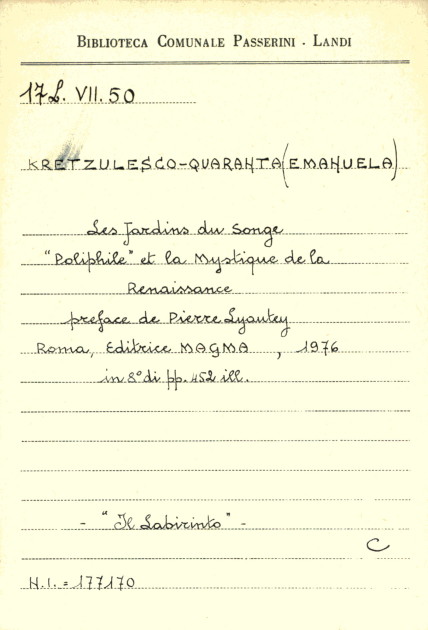 BIBLIOTECA COMUNALE PASSERINI - LANDI
17 L. VII. 50
KRETZULESCO-QUARANTA (EMANUELA)
Les Jardins du Songe
"Poliphile" et la Mystique de la
Renaissance
preface de Pierre Lyautey
Roma, Editrice MAGMA , 1976
in 8° di pp. 452 ill.
- "Il Labirinto" -
C
N.I. = 177170